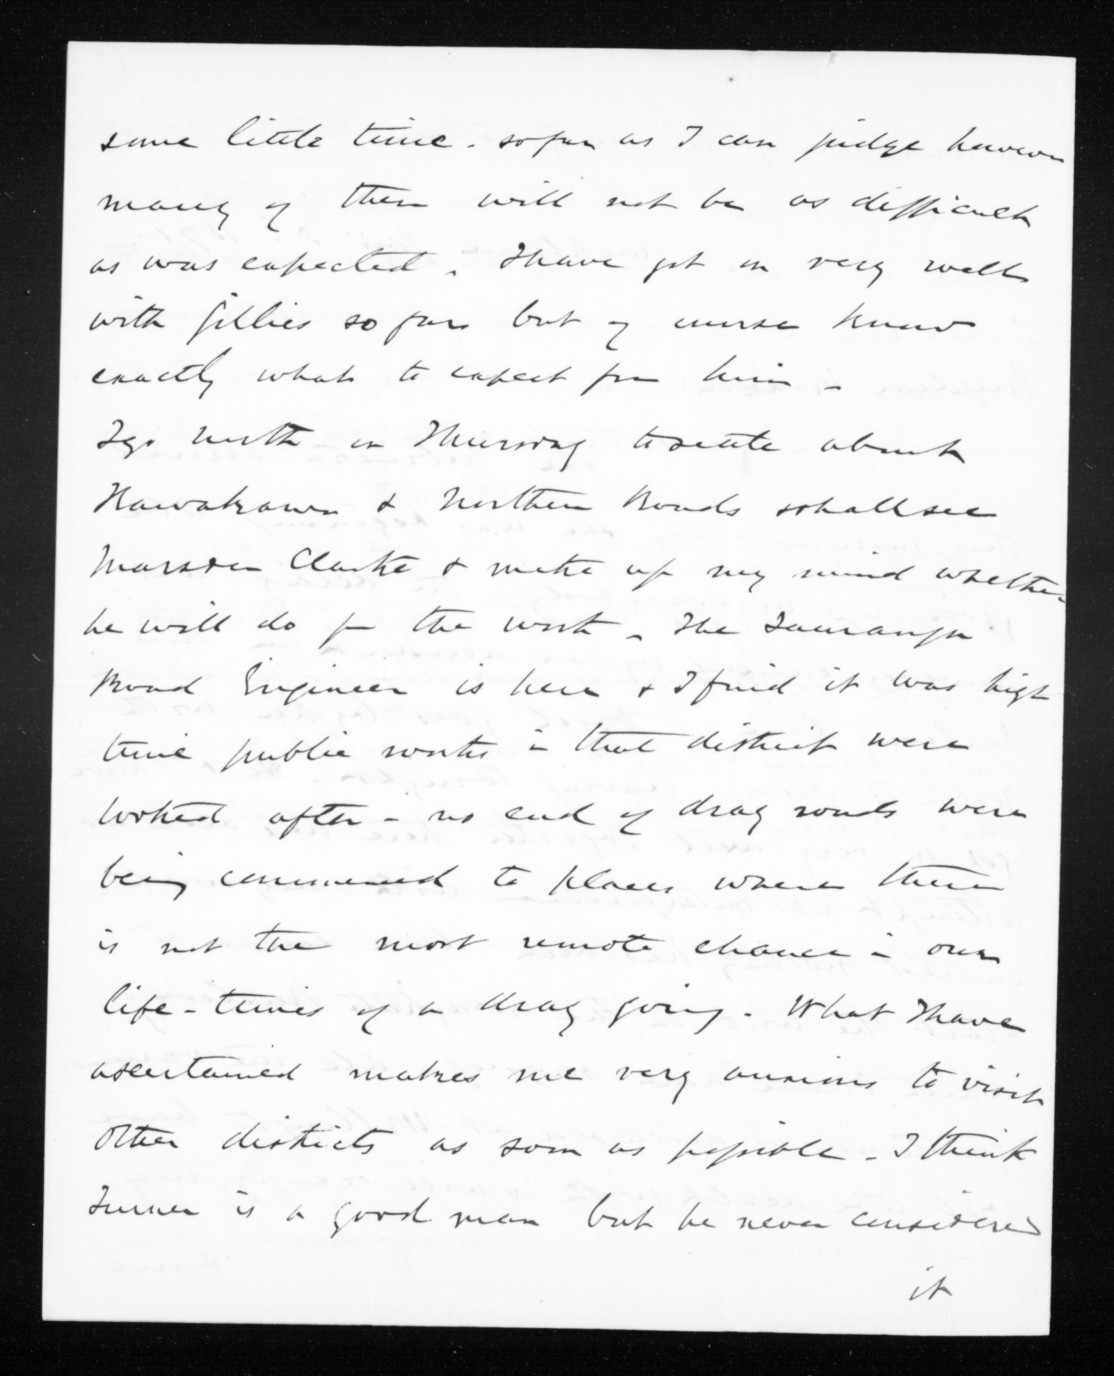 some little time. so far as I can judge however
many of them will not be as difficult
as was expected. I have got on very well
with Gillies so far but of course know
exactly what to expect from him -
I go north on Thursday to settle about
Kawakawa & Northern Roads & shall see
Marsden Clarke & make up my mind whether
he will do for the work - The Tauranga
Road Engineer is here & I find it was high
time public works in that district were
looked after - no end of dray roads were
being commenced to places where there
is not the most remote chance in our
life-times of a dray going. What I have
ascertained makes me very anxious to visit
other districts as soon as possible - I think
Turner is a good man but he never considered
it